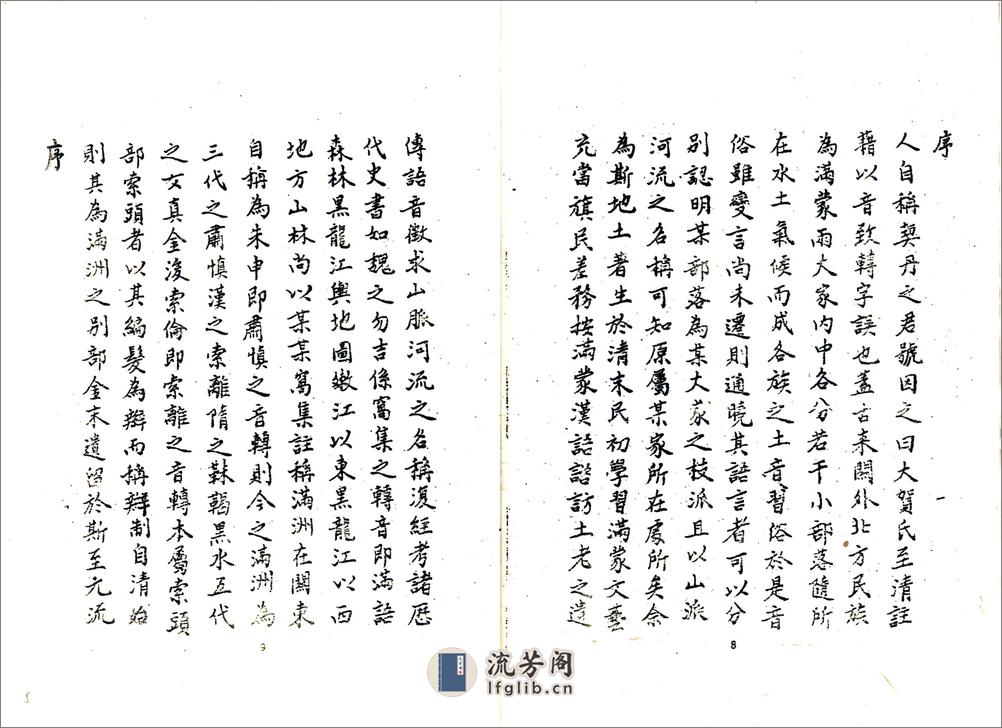 序
人自稱契丹之君號因之曰大賀氏至清註
籍以音致轉字誤也蓋古來關外北方民族
為滿蒙兩大家內中各分若干小部落隨所
在水土氣候而成各族之土音習俗於是音
俗雖變言尚未遷則通曉其語言者可以分
別認明某部落為某大家之枝派且以山派
河流之名稱可知原屬某家所在處所矣余
為斯地土著生於清末民初學習滿蒙文藝
充當旗民差務按滿蒙漢語諮訪土老之遺
8
傳語音徵求山脈河流之名稱復經考諸歷
代史書如魏之勿吉係窩集之轉音即滿語
森林黑龍江輿地圖嫩江以東黑龍江以西
地方山林尚以某某窩集註稱滿洲在關東
自稱為朱申即肅慎之音轉則今之滿洲為
三代之肅慎漢之索離隋之靺鞨黑水五代
之女真金後索倫即索離之音轉本屬索頭
部索頭者以其編髮為辮而稱辮制自清始
則其為滿洲之別部金末遺留於斯至元流
序
9
流芳阁
lfglib.cn